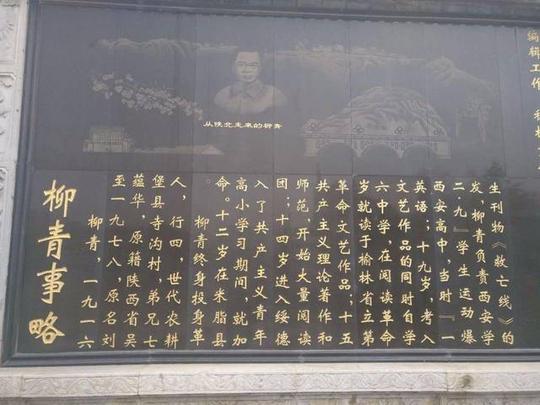 从陕北走来的柳青
柳青事略
柳青，一九一六
至一九七八，原名刘
蕴华，原籍陕西省吴
堡县寺沟村，弟兄七
人，行四，世代农耕
柳青终身投身革
命。十二岁在米脂县
高小学习期间，就加
入了共产主义青年
团；十四岁进入绥德
师范开始大量阅读
共产主义理论著作和
革命文艺作品；十五
岁就读于榆林省立第
六中学，在阅读革命
文艺作品的同时自学
英语；十九岁，考入
西安高中，当时『一
二·九』学生运动爆
发，柳青负责西安学
生刊物《救亡线》的
编辑工作